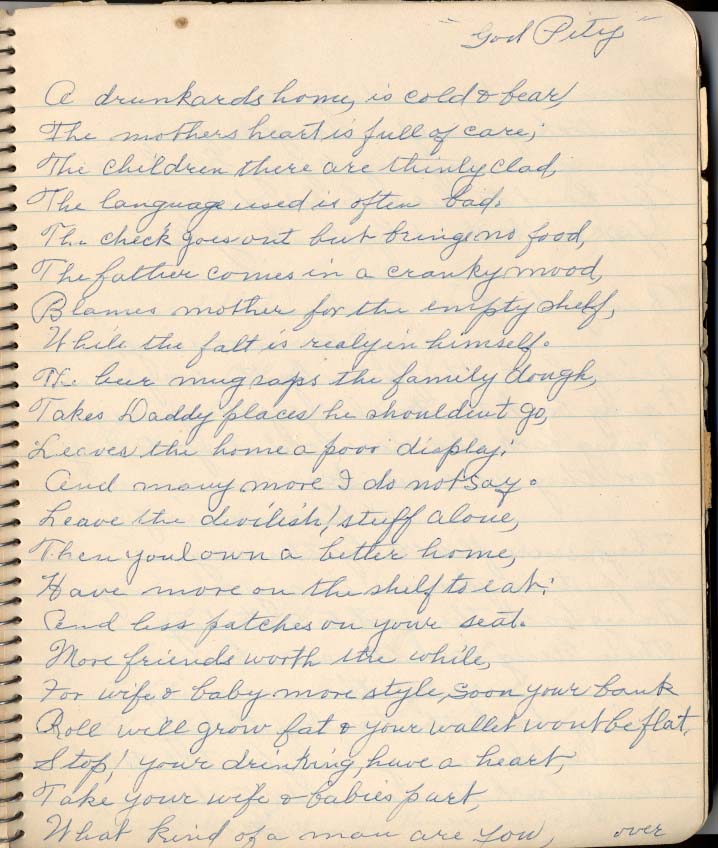 "God Pity"
A drunkards home, is cold & bear,
The mothers heart is full of care;
The children there are thinly clad,
The language used is often bad.
The check goes out but brings no food,
The father comes in a cranky mood,
Blames mother for the empty shelf,
While the falt is realy in himself.
The beer mug saps the family dough,
Takes Daddy places he shouldent go,
Leaves the home a poor display;
And many more I do not say.
Leave the devilish! stuff alone,
Then youl own a better home,
Have more on the shelf to eat;
And less patches on your seat.
More friends worth the while,
For wife & baby more style, soon your bank
Roll will grow fat & your wallet wont be flat,
Stop! your drinking, have a heart,
Take your wife & babies part,
What kind of a man are you, over